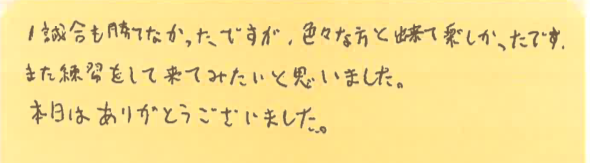 1試合も勝てなかったですが、色々な方と出来て楽しかったです.
また練習をして来てみたいと思いました。
本日はありがとうございました。